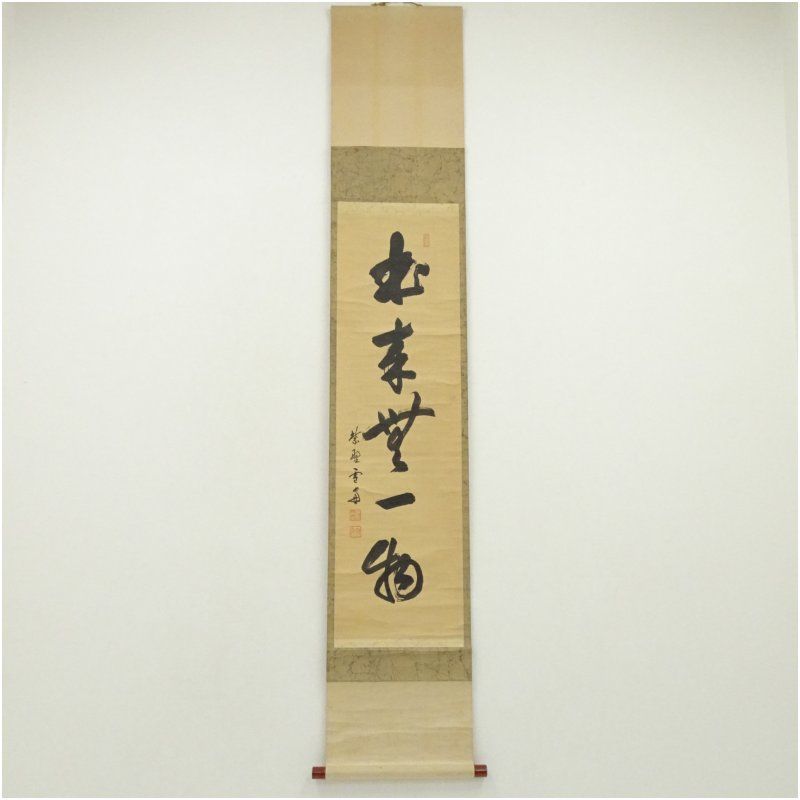 本来無一物
紫野雪窗